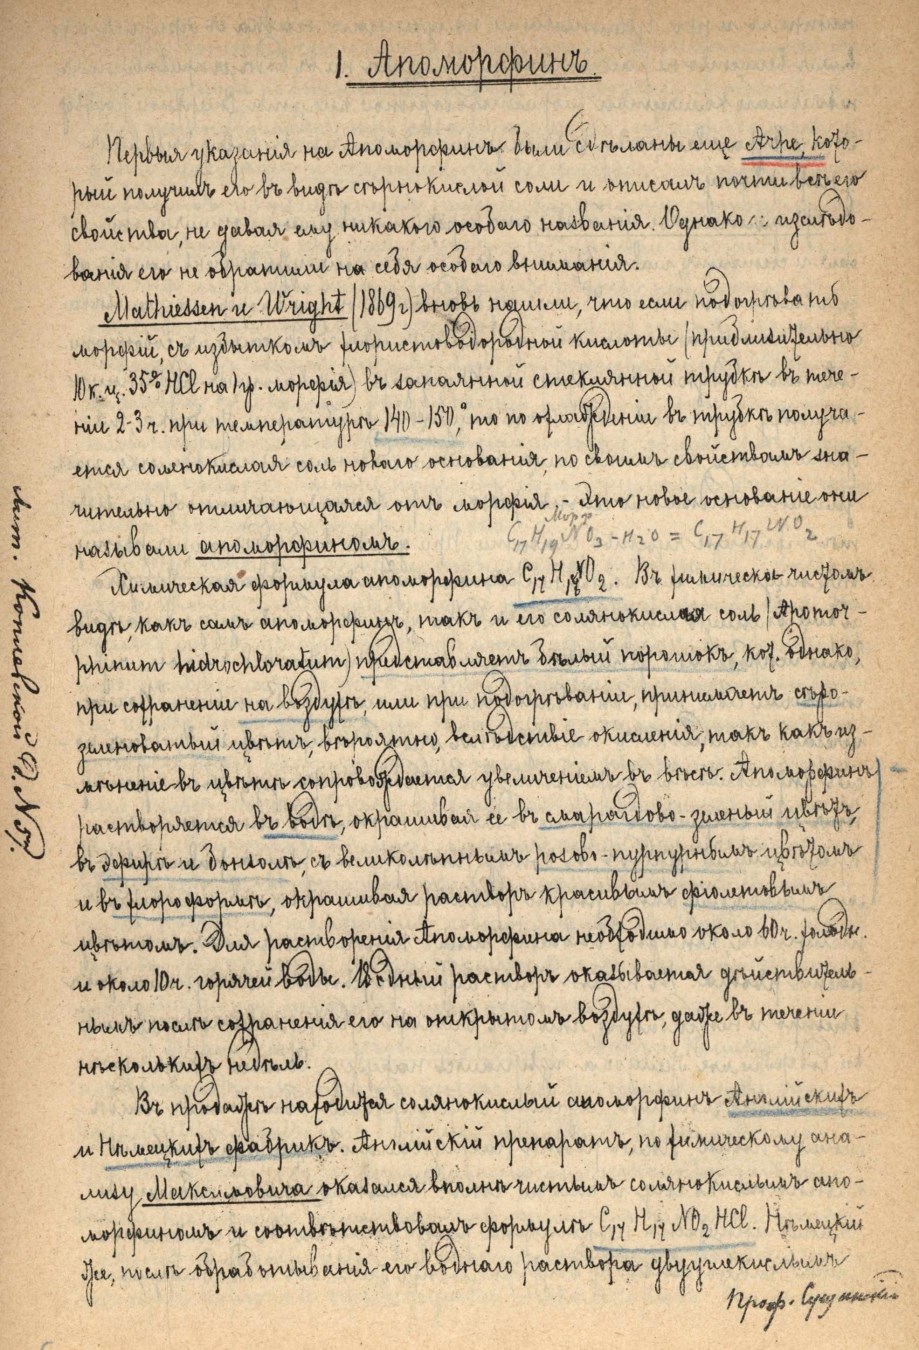 1. Апоморфинъ.
Первыя указанія на Апоморфинъ были сдѣланы еще Arpe, кото-
рый получилъ его въ видѣ сѣрнокислой соли и описалъ почти всѣ его
свойства, не давая ему никакого особаго названія. Однако изслѣдо-
ванія его не обратили на себя особаго вниманія.
Mathiessen и Wright (1869 г) вновь нашли, что если подогрѣвать
морфій, съ избыткомъ хлористоводородной кислоты (приблизительно
10 к. ц. 35% HCl на 1 гр. морфія) въ запаянной стеклянной трубкѣ въ тече-
ніе 2-3 ч. при температурѣ 140-150°, то по охлажденіе въ трубкѣ получа-
ется соленокислая соль новаго основанія, по своимъ свойствамъ зна-
чительно отличающаяся отъ морфія. - Это новое основаніе они
называли апоморфиномъ.
Морф
C17 H19 NO3 - H2O = C17 H17 NO2
Химическая формула апоморфина C17 H17 NO2. Въ химически чистомъ
видѣ, какъ самъ апоморфинъ, такъ и его солянокислая соль (Apomor-
phinum hidrochloratum) представляетъ бѣлый порошокъ, кот. однако,
при сохраненіе на воздухѣ, или при подогрѣваніе, принимаетъ сѣро-
зеленоватый цвѣтъ, вѣроятно, вслѣдствіе окисленія, такъ какъ из-
мѣненіе въ цвѣтѣ сопровождается увеличеніемъ въ вѣсѣ. Апоморфинъ
растворяется въ водѣ, окрашивая ее въ смарагдово-зеленый цвѣтъ,
въ эфирѣ и бензолѣ, съ великолѣпнымъ розово-пурпурнымъ цвѣтомъ
и въ хлороформѣ, окрашивая растворъ красивымъ фіолетовымъ
цвѣтомъ. Для растворенія Апоморфина необходимо около 60 ч. холодн.
и около 10 ч. горячей воды. Водный растворъ оказывается дѣйствитель-
нымъ послѣ сохраненія его на открытомъ воздухѣ, даже въ теченіе
нѣсколькихъ недѣль.
Въ продажѣ находится солянокислый апоморфинъ Англійскихъ
и Нѣмецкихъ фабрикъ. Англійскій препаратъ, по химическому ана-
лизу Максимовича оказался вполнѣ чистымъ солянокислымъ апо-
морфиномъ и соотвѣтствовалъ формулѣ C17 H17 NO2 HCl. Нѣмецкій
же, послѣ обработыванія его воднаго раствора двууглекислымъ
Проф. Сущинскій
Лит. Коплевской Д. N 57.